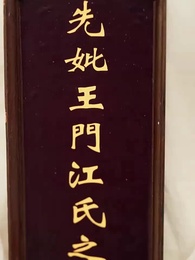 先妣王門江氏之